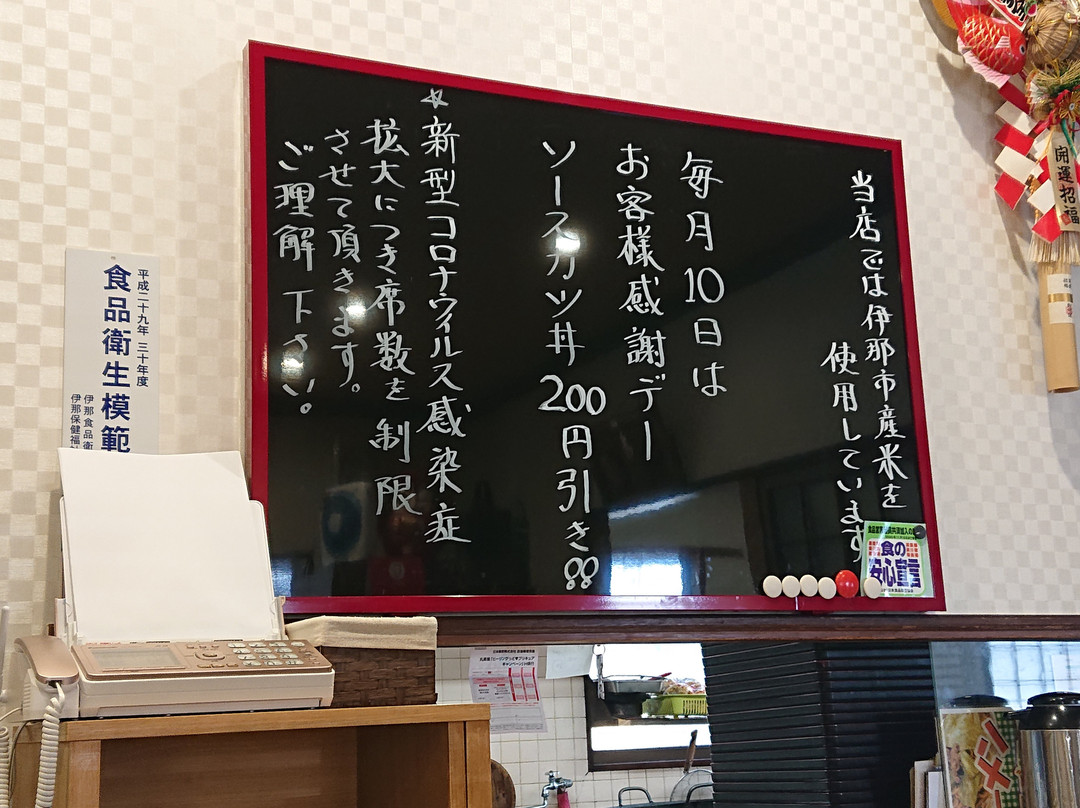 当店では伊那市産米を
使用しています
毎月10日は
お客様感謝デー
ソースカツ丼200円引き!!
☆新型コロナウィルス感染症
拡大につき席数を制限
させて頂きます。
ご理解下さい。
平成二十九年 三十年度
食品衛生模範
伊那食品衛
伊那保健福
開運招福
食の
安心宣言